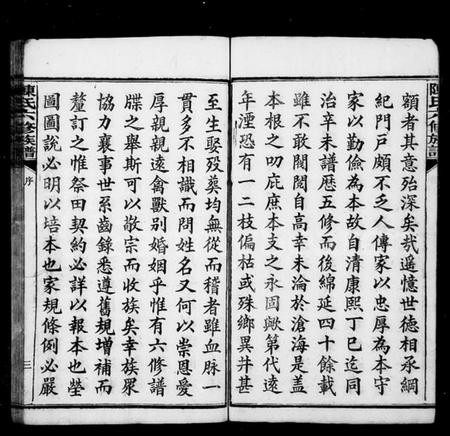 陳氏六修族譜
額者其意殆深矣哉遥憶世德相承綱
紀門戶頗不乏人傳家以忠厚為本守
家以勤儉為本故自清康熙丁巳迄同
治辛未譜歷五修而後綿延四十餘載
雖不敢閥閱自高幸未淪於滄海是蓋
本根之叨庇庶本支之永固歟第代遠
年湮恐有一二枝偏枯或殊鄉異井甚
至生娶歿葬均無從而稽者雖血脉一
貫多不相識而問姓名又何以崇恩愛
厚親親遠禽獸別婚姻乎惟有六修譜
牒之舉斯可以敬宗而收族矣幸族眾
協力襄事世系齒錄悉遵舊規增補而
釐訂之惟祭田契約必詳以報本也塋
圖圖說必明以培本也家規條例必嚴
陳氏六修族譜
序
三